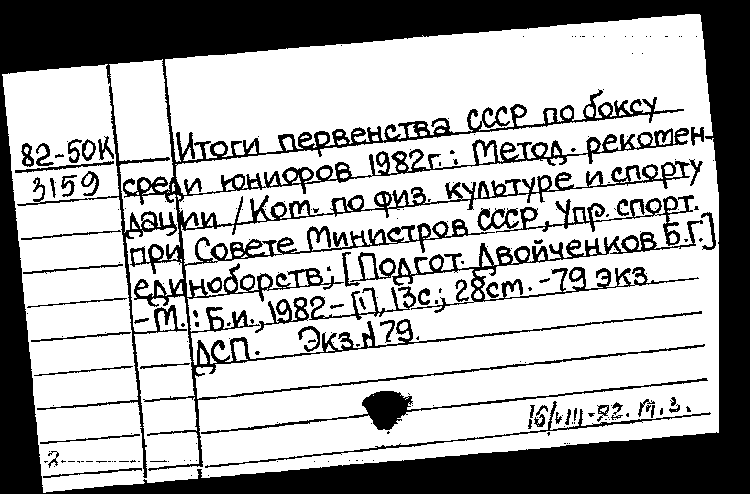 82-50К
3159
Итоги первенства СССР по боксу
среди юниоров 1982г.: Метод. рекомен-
дации / Ком. по физ. культуре и спорту
при Совете Министров СССР, Упр. спорт.
единоборств; [Подгот. Двойченков Б.Г.]
- М.: Б.и., 1982.- [1], 13с.; 28cm. - 79 экз.
ДСП. Экз.№79.
16/VIII-82. т.з.